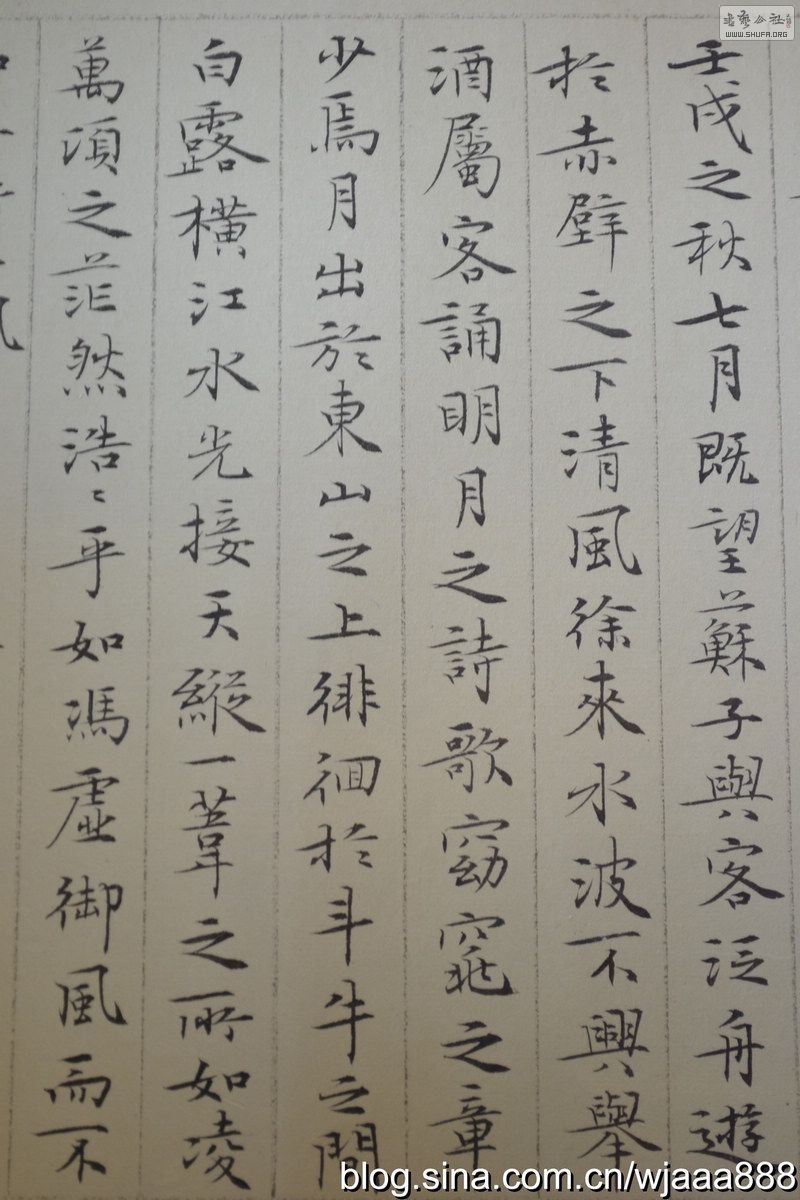 壬戌之秋七月既望蘇子與客泛舟遊
於赤壁之下清風徐來水波不興舉
酒屬客誦明月之詩歌窈窕之章
少焉月出於東山之上徘徊於斗牛之間
白露橫江水光接天縱一葦之所如凌
萬頃之茫然浩〻乎如馮虛御風而不
書藝公社
WWW.SHUFA.ORG
blog.sina.com.cn/wjaaa888